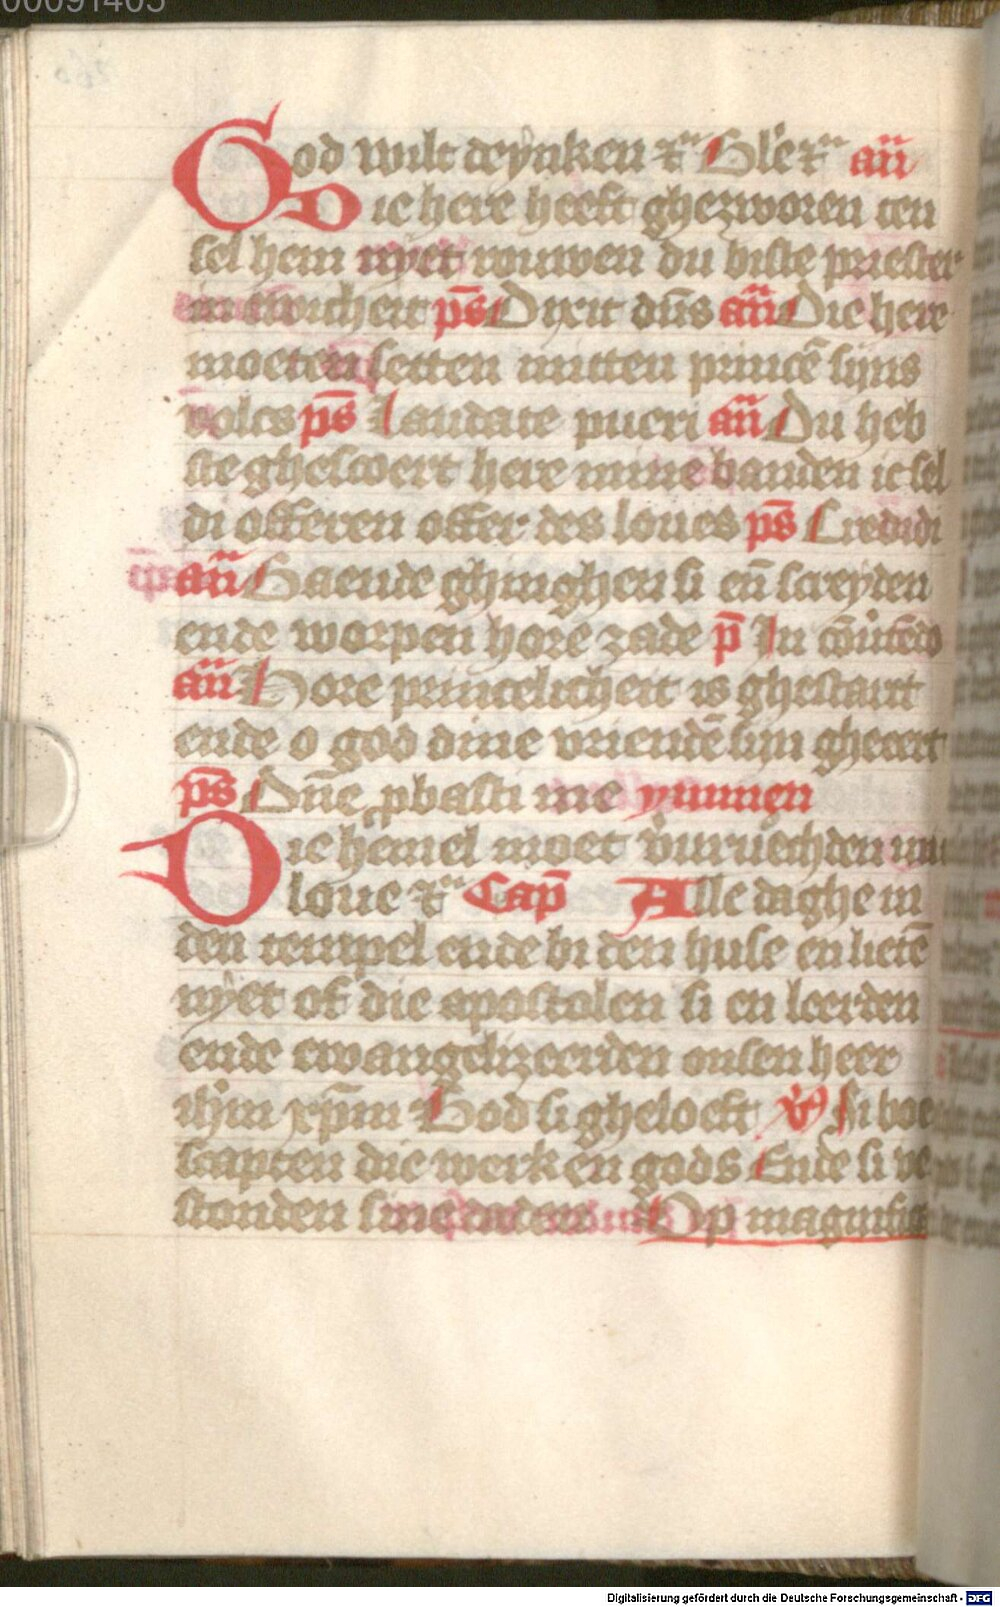 00091405
God wilt deynken &c Gl'e &c an̄
Die here heeft ghezworen ten
sel hem nyet rouwen du biste priester
in ewicheit ps̄ Dixit dn̄s an̄ Die here
moeten setten mitten princē sijns
volcs ps̄ Laudate pueri an̄ Du heb
ste ghescoert here mine banden ic sel
di offeren offer des loues ps̄ Credidi
an̄ Gaende ghinghen si en̄ screyden
ende worpen horē zade p̄ In cōu'tēdo
an̄ Hore princelicheit is ghestarct
ende o god dine vriendē sijn gheeert
ps̄ Dn̄e pbasti me ymmen
Die hemel moet v'uruechden mit
loue &c Cap̄ Alle daghe in
den tempel ende bi den huse en lietē
nyet of die apostolen si en leerden
ende ewangelizeerden onsen heer
ih'm xp̄m God si gheloeft V' Si boe
scapten die werken gods Ende si ve
stonden sine daden Op magnificat
Digitalisierung gefördert durch die Deutsche Forschungsgemeinschaft - DFG